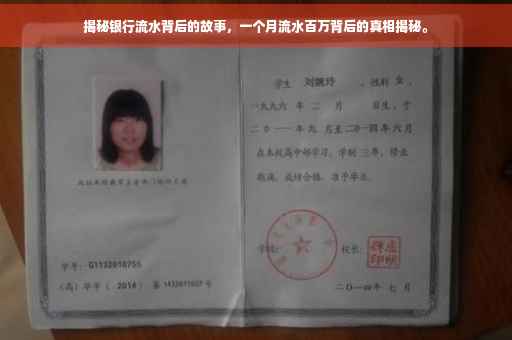 揭秘银行流水背后的故事，一个月流水百万背后的真相揭秘。
学生 刘婉玲 ，性别 女 ，
一九九六 年 二 月 日生，于
二0一一 年 九 月至 二0一四 年 六 月
在本校高中部学习，学制 三 年，修业
期满，成绩合格，准予毕业。
学校： 校长：
二〇一四 年 七 月
学号： G1132010755
(高) 毕字 ( 2014 ) 第 1432011007 号